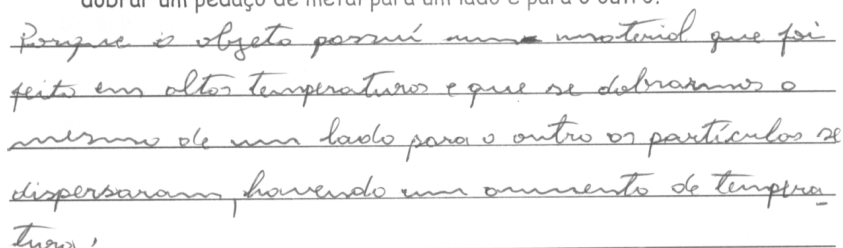 dobrar um pedaço de metal para um lado e para o outro.
Porque o objeto possuí um material que foi
feito em altas temperaturas e que se dobrarmos o
mesmo de um lado para o outro as partículas se
dispersaram, havendo um aumento de tempera
tura.